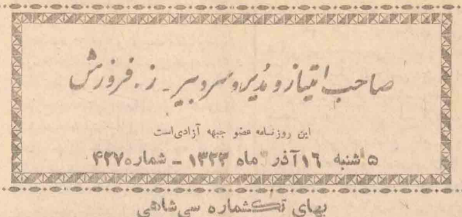 صاحب امتیاز و مدیر و سردبیر - ز. فروزش
این روزنامه عضو جبهه آزادی است
۵ شنبه ۱۶ آذر ماه ۱۳۲۳ - شماره ۴۲۷
بهای تکشماره سی شاهی